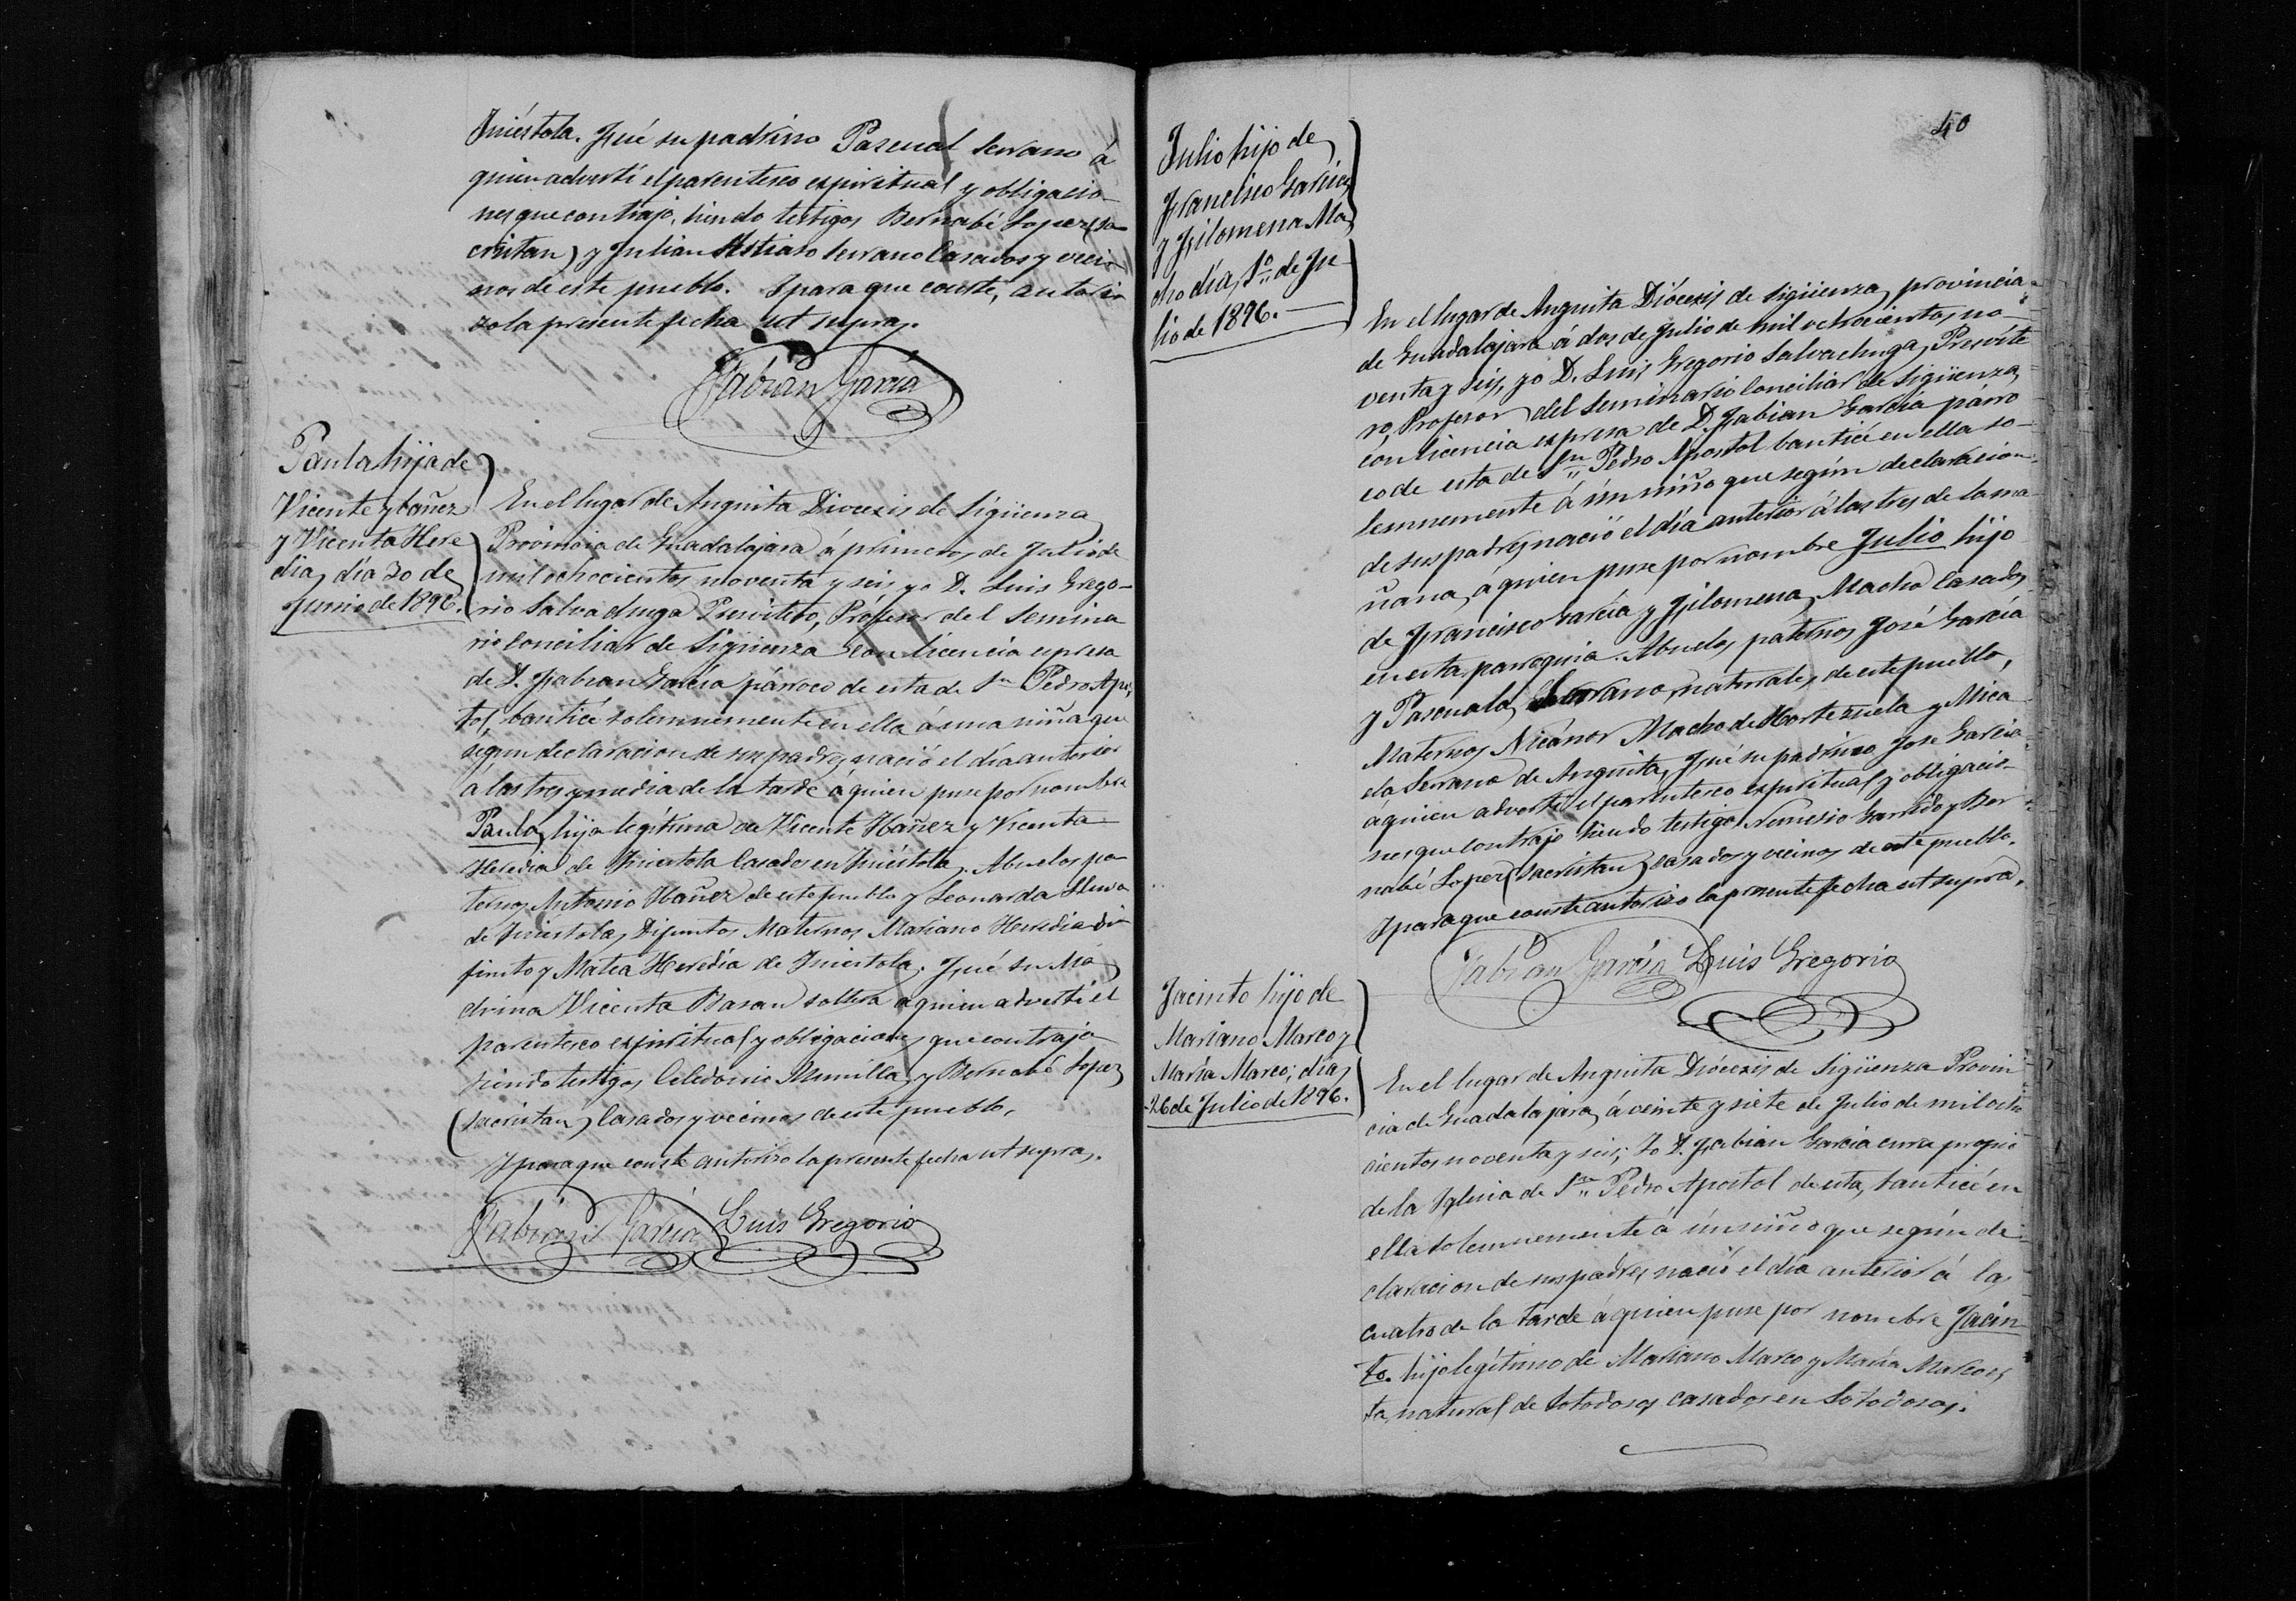 Iniéstola. Fué su padrino Pascual Serrano á
quien advertí el parentesco espiritual y obligacio-
nes que contrajo, siendo testigos Bernabé Lopez (sa-
cristan) y Julian Serrano Casados y veci-
nos de este pueblo. Y para que conste, autori-
zo la presente fecha ut supra.
Fabian García
Paula hija de
Vicente Ybañez
y Vicenta Here
dia, dia 30 de
Junio de 1896.
En el lugar de Anguita Diocesis de Sigüenza
Provincia de Guadalajara á primero, de Julio de
mil ochocientos noventa y seis, yo D. Luis Grego-
rio Salvachuga Presvitero, Profesor del Semina
rio Conciliar de Sigüenza con licencia espresa
de D. Fabian García párroco de esta de Sn Pedro Apos
tol, bauticé solemnemente en ella á una niña que
segun declaracion de sus padres nació el día anterior
á las tres y media de la tarde á quien puse por nombre
Paula, hija legítima de Vicente Ibañez y Vicenta
Heredia de Iniestola Casados en Iniéstola. Abuelos pa-
ternos Antonio Ibañez de este pueblo y Leonarda
de Iniestola, Difuntos Maternos Mariano Heredia di-
funto y Matea Heredia de Iniestola. Fué su Ma
drina Vicenta Basan soltera á quien advertí el
parentesco espiritual y obligaciones que contrajo
siendo testigos Celedonio Munilla, y Bernabé Lopez
(sacristan) Casados y vecinos de este pueblo.
Y para que conste autorizo la presente fecha ut supra.
Fabian García Luis Gregorio
40
Julio hijo de
Francisco García
y Filomena Ma
cho día 1º de Ju-
lio de 1896.
En el lugar de Anguita Diócesis de Sigüenza, provincia
de Guadalajara á dos de Julio de mil ochocientos, no-
venta y seis, yo D. Luis Gregorio Salvachuga, Presvite
ro, Profesor del Seminario Conciliar de Sigüenza,
con licencia espresa de D. Fabian García párro
co de esta de Sn Pedro Apostol bauticé en ella so-
lemnemente á ún niño que según declaracion
de sus padres nació el día anterior á las tres de la ma
ñana, á quien puse por nombre Julio hijo
de Francisco García y Filomena, Macho Casados,
en esta parroquia. Abuelos, paternos José García
y Pascuala Serrano, naturales, de este pueblo,
Maternos Nicánor Macho de Hortezuela y Mica
ela Serrano de Anguita, Fué su padrino Jose García
á quien advertí el parentesco espiritual y obligacio-
nes que contrajo siendo testigos Nemesio Garrido y Ber
nabé Lopez (sacristan) casados y vecinos de este pueblo.
Y para que conste autorizo la presente fecha ut supra.
Fabian García Luis Gregorio
Jacinto hijo de
Mariano Marco y
María Marco; día,
26 de Julio de 1896.
En el lugar de Anguita Diócesis de Sigüenza Provin
cia de Guadalajara, á veinte y siete de Julio de mil ocho
cientos noventa y seis; Yo D. Fabián García cura propio
de la Iglesia de Sn Pedro Apostol de esta, bauticé en
ella solemnemente á ún niño que según de
claracion de sus padres nació el día anterior á las
cuatro de la tarde á quien puse por nombre Jacin
to. hijo legítimo de Mariano Marco y María Marco es
ta, natural de Sotodosos casados en Sotodosos.